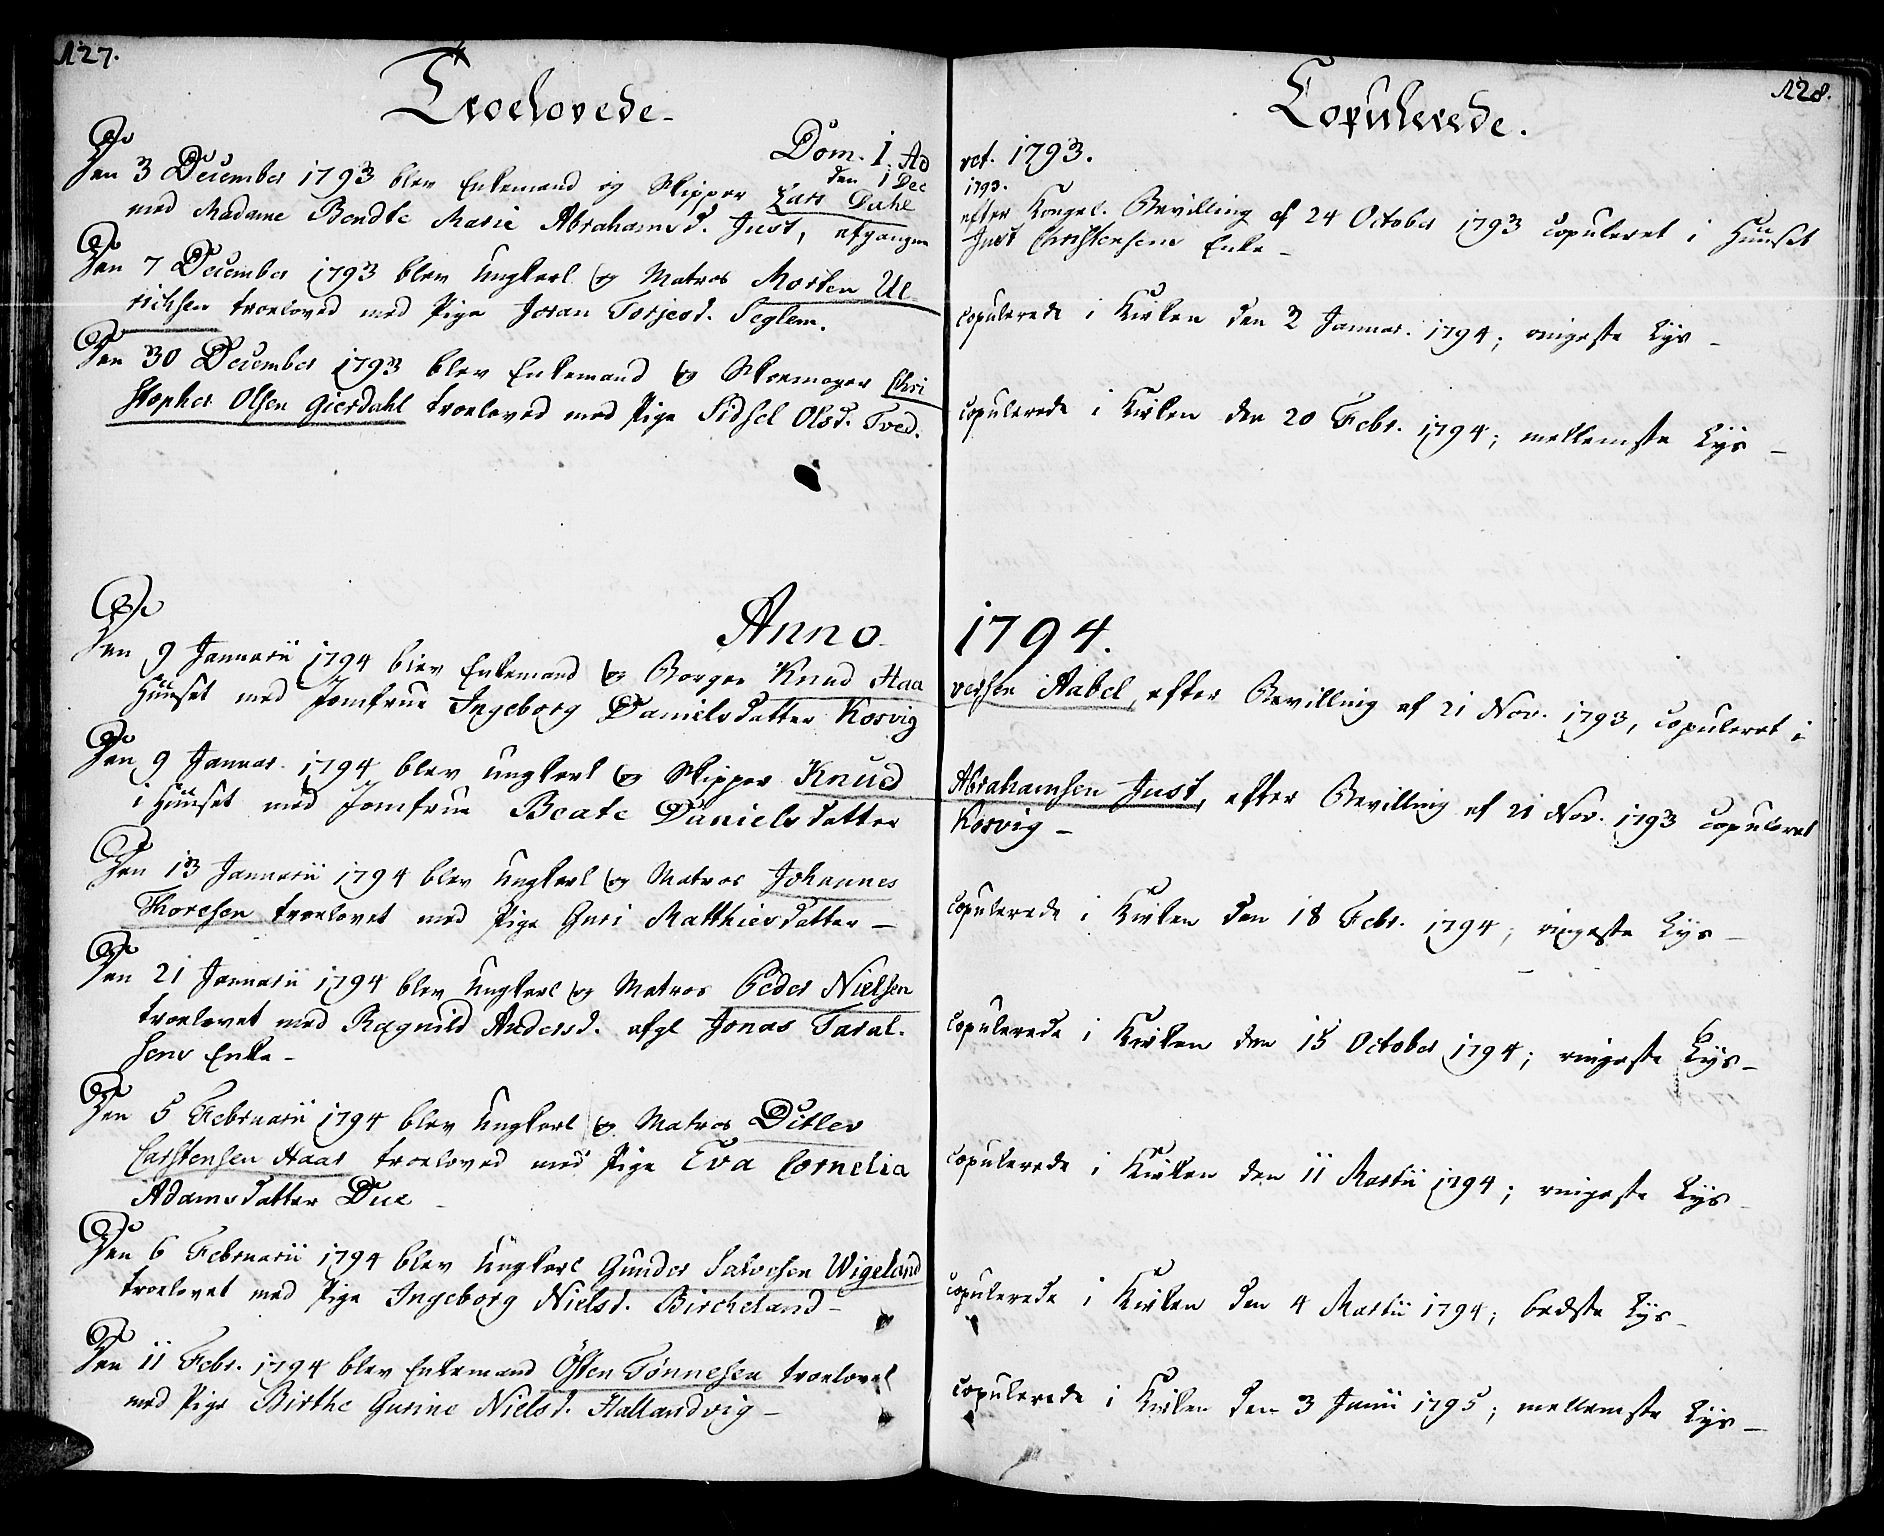 127.
Troelovede.
Dom. 1. Ad
den 1 Dec
Den 3 December 1793 blev Enkemand og Skipper Lars Dahl
med Madame Bendte Marie Abrahamsd. Just, afgangne
Den 7 December 1793 blev Ungkarl og Matros Morten Ul-
richsen troeloved med Pige Joran Torjesd. Seglem.
Den 30 December 1793 blev Enkemand og Skoemager Chri
stopher Olsen Gierdahl troeloved med Pige Sidsel Olsd. Tved.
Anno
Den 9 Januarii 1794 blev Enkemand og Borger Knud Haa
Huuset med Jomfrue Ingeborg Danielsdatter Korvig
Den 9 Januar. 1794 blev Ungkarl og Skipper Knud
i Huuset med Jomfrue Beate Danielsdatter
Den 13 Januarii 1794 blev Ungkarl og Matros Johannes
Thoresen troelovet med Pige Guri Matthiesdatter –
Den 21 Januarii 1794 blev Ungkarl og Matros Peder Nielsen
troelovet med Ragnild Andersd. afgl Jonas Taral-
sens Enke –
Den 5 Februarii 1794 blev Ungkarl og Matros Ditlev
Carstensen Haar troeloved med Pige Eva Cornelia
Adamsdatter Due –
Den 6 Februarii 1794 blev Ungkarl Gunder Salvesen Wigeland
troelovet med Pige Ingeborg Nielsd. Bircheland –
Den 11 Febr. 1794 blev Enkemand Østen Tønnesen troelovet
med Pige Birthe Gurine Nielsd. Hallandvig –
128.
Copulerede.
vet. 1793.
1793.
efter Kongel. Bevilling af 24 October 1793 copuleret i Huuset
Just Christensens Enke –
copulerede i Kirken den 2 Januar. 1794; ringeste Lys –
copulerede i Kirken den 20 Febr. 1794; mellemste Lys –
1794.
versen Aabel, efter Bevilling af 21 Nov. 1793, copuleret i
Abrahamsen Just, efter Bevilling af 21 Nov. 1793 copuleret
Korvig –
copulerede i Kirken den 18 Febr. 1794; ringeste Lys –
copulerede i Kirken den 15 October 1794; ringeste Lys –
copulerede i Kirken den 11 Martii 1794; ringeste Lys –
copulerede i Kirken den 4 Martii 1794; bedste Lys –
copulerede i Kirken den 3 Junii 1795; mellemste Lys –